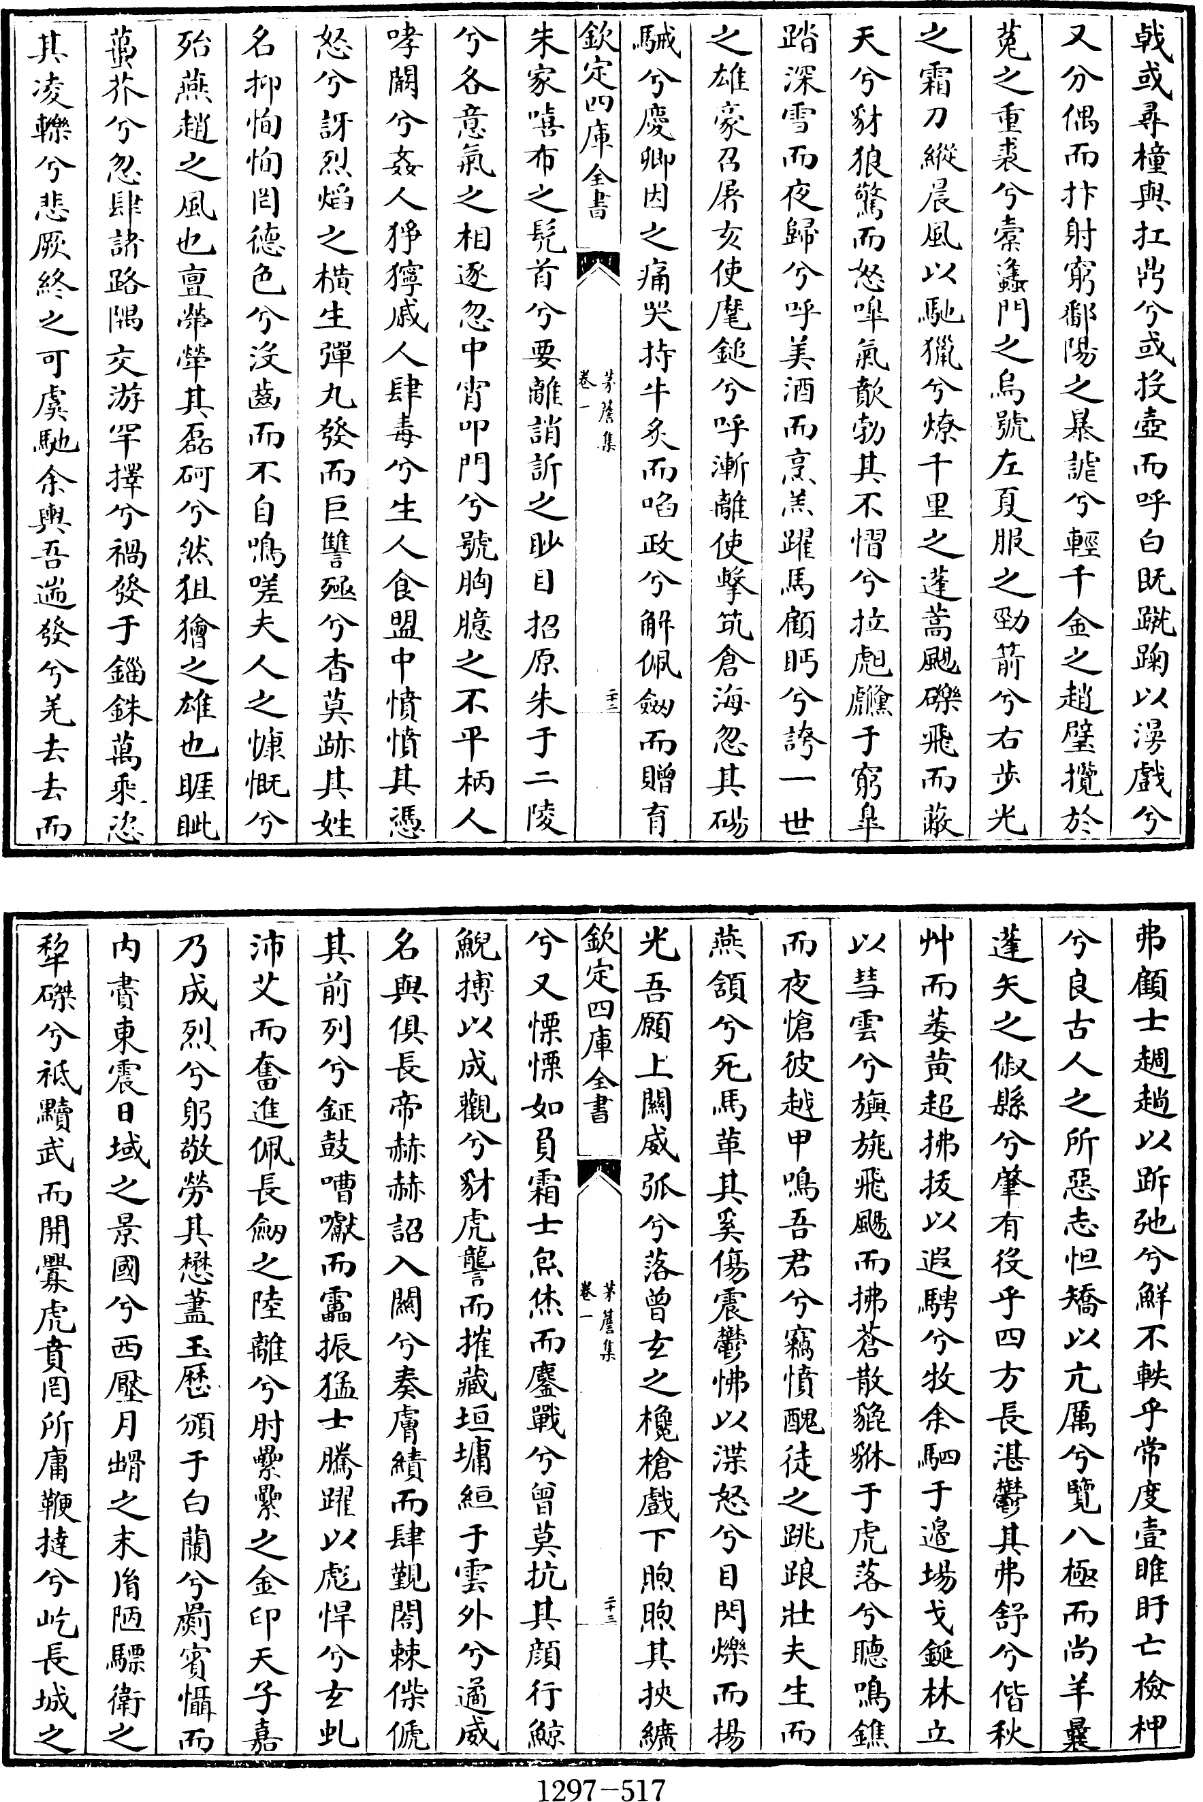 戟或尋橦與扛鼎兮或投壺而呼白既蹴踘以漫戲兮
又分偶而抃射窮鄱陽之暴謔兮輕千金之趙璧攬於
菟之重裘兮橐蠭門之烏號左夏服之勁箭兮右步光
之霜刀縱晨風以馳獵兮燎千里之蓬蒿颮礫飛而蔽
天兮豺狼驚而怒嘷氣歕勃其不慴兮拉虪于窮臯
踏深雪而夜歸兮呼美酒而烹羔躍馬顧眄兮誇一世
之雄豪召屠亥使麾鎚兮呼漸離使擊筑倉海忽其碭
駴兮慶卿因之痛哭持牛炙而啗政兮解佩劒而贈育
欽定四庫全書
茅簷集
卷一
二十二
朱家嘻布之髠首兮要離誚訢之眇目招原朱于二陵
兮各意氣之相逐忽中宵叩門兮號胸臆之不平柄人
哮闞兮姦人猙獰戚人肆毒兮生人食盟中憤憤其憑
怒兮訝烈焰之橫生彈丸發而巨讐殛兮杳莫跡其姓
名抑恂恂罔德色兮沒齒而不自鳴嗟夫人之慷慨兮
殆燕趙之風也亶犖犖其磊砢兮然狙獪之雄也睚眦
蠆芥兮忽肆諸路隅交游罕擇兮禍發于錙銖萬乘恣
其凌轢兮悲厥終之可虞馳余輿吾遄發兮羌去去而
弗顧士趯趫以跅弛兮鮮不軼乎常度壹睢盱亡檢柙
兮良古人之所惡志怛矯以亢厲兮覽八極而尚羊曩
蓬矢之俶縣兮肇有役乎四方長湛鬱其弗舒兮偕秋
艸而萎黄超拂拔以遐騁兮牧余駟于邊場戈鋋林立
以彗雲兮旟旐飛颺而拂蒼散貔貅于虎落兮聽鳴鐎
而夜愴彼越甲鳴吾君兮竊憤醜徒之跳踉壯夫生而
燕頷兮死馬革其奚傷震鬱怫以渫怒兮目閃爍而揚
光吾願上闕威弧兮落曾玄之欃槍戲下煦煦其挾纊
欽定四庫全書
茅簷集
卷一
二十三
兮又慄慄如負霜士炰烋而鏖戰兮曾莫抗其顔行鯨
鯢搏以成觀兮豺虎讋而摧藏垣墉絙于雲外兮遹威
名與俱長帝赫赫詔入闕兮奏膚績而肆觀閤棘傑傂
其前列兮鉦鼓嘈囐而靁振猛士騰躍以彪悍兮玄虬
沛艾而奮進佩長劒之陸離兮肘纍纍之金印天子嘉
乃成烈兮躬敬勞其懋藎玉厯頒于白蘭兮罽賓懾而
內賮東震日域之景國兮西壓月𧐅之末胤陋驃衛之
犂磔兮袛黷武而開釁虎賁罔所庸鞭撻兮屹長城之
1297-517